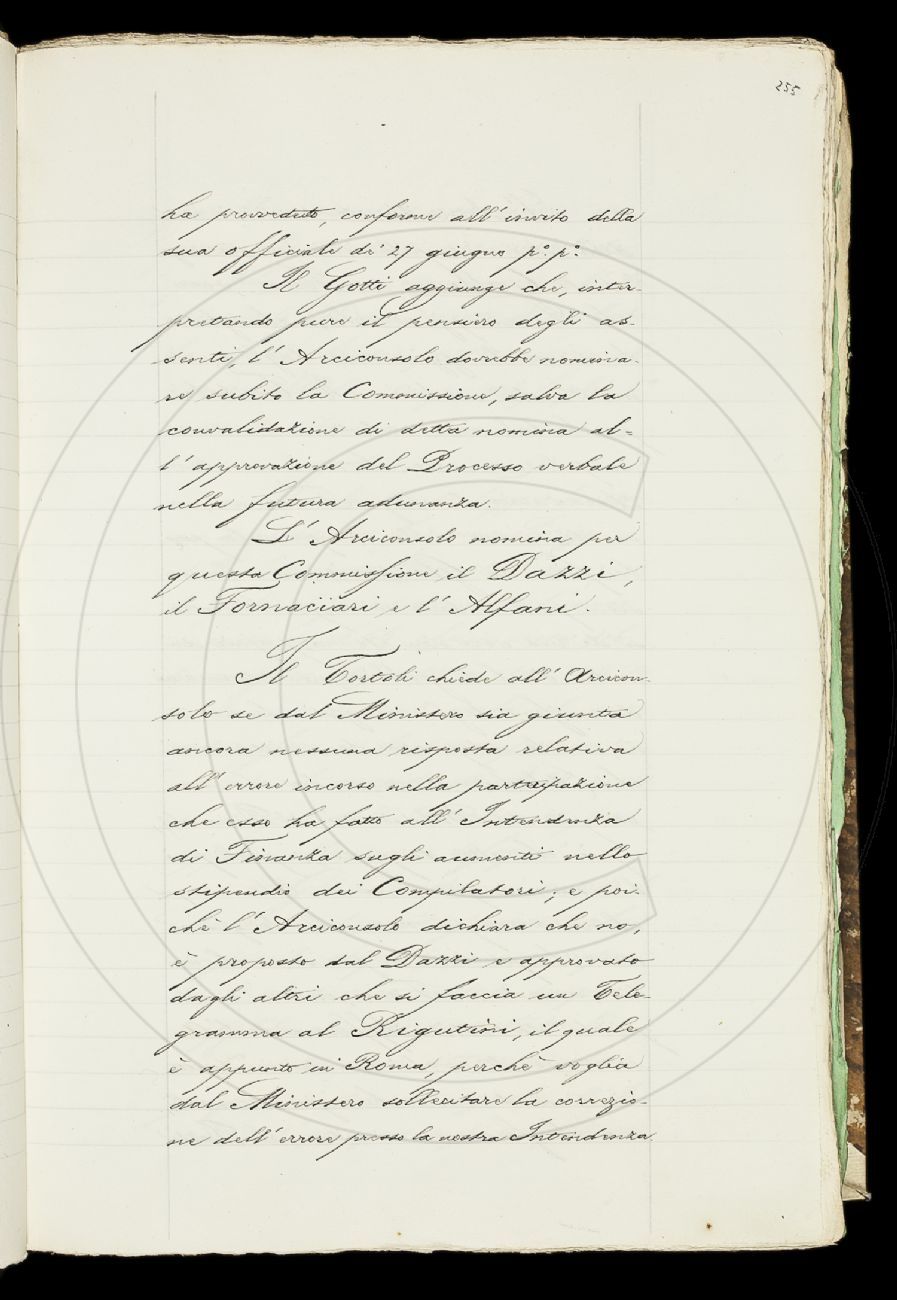 255
ha provveduto, conforme all'invito della
sua officiale di 27 giugno p.° p.°
Il Gotti aggiunge che, inter-
pretando pure il pensiero degli as-
senti, l'Arciconsolo dovrebbe nomina-
re subito la Commissione, salva la
convalidazione di detta nomina al=
l'approvazione del Processo verbale
nella futura adunanza.
L'Arciconsolo nomina per
questa Commissione il Dazzi,
il Fornaciari e l'Alfani.
Il Tortoli chiede all'Arcicon-
solo se dal Ministero sia giunta
ancora nessuna risposta relativa
all'errore incorso nella partecipazione
che esso ha fatto all'Intendenza
di Finanza sugli aumenti nello
stipendio dei Compilatori; e poi-
chè l'Arciconsolo dichiara che no,
è proposto dal Dazzi e approvato
dagli altri che si faccia un Tele-
gramma al Rigutini, il quale
è appunto in Roma, perchè voglia
dal Ministero sollecitare la correzio-
ne dell'errore presso la nostra Intendenza